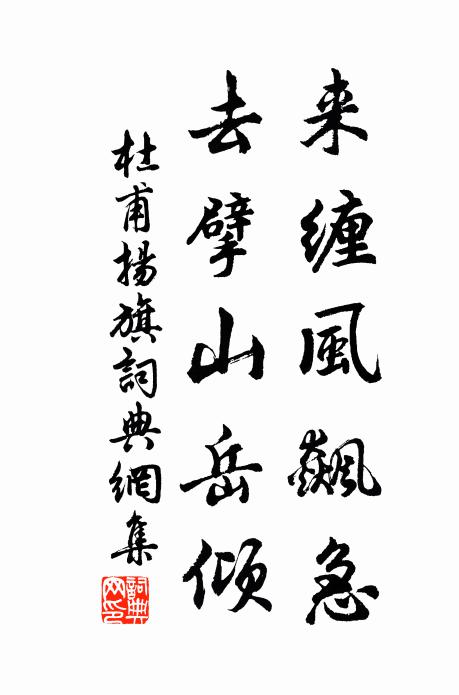 来缠風飙急
去擘山岳傾
杜甫揚旗詞典網集
詞典網印